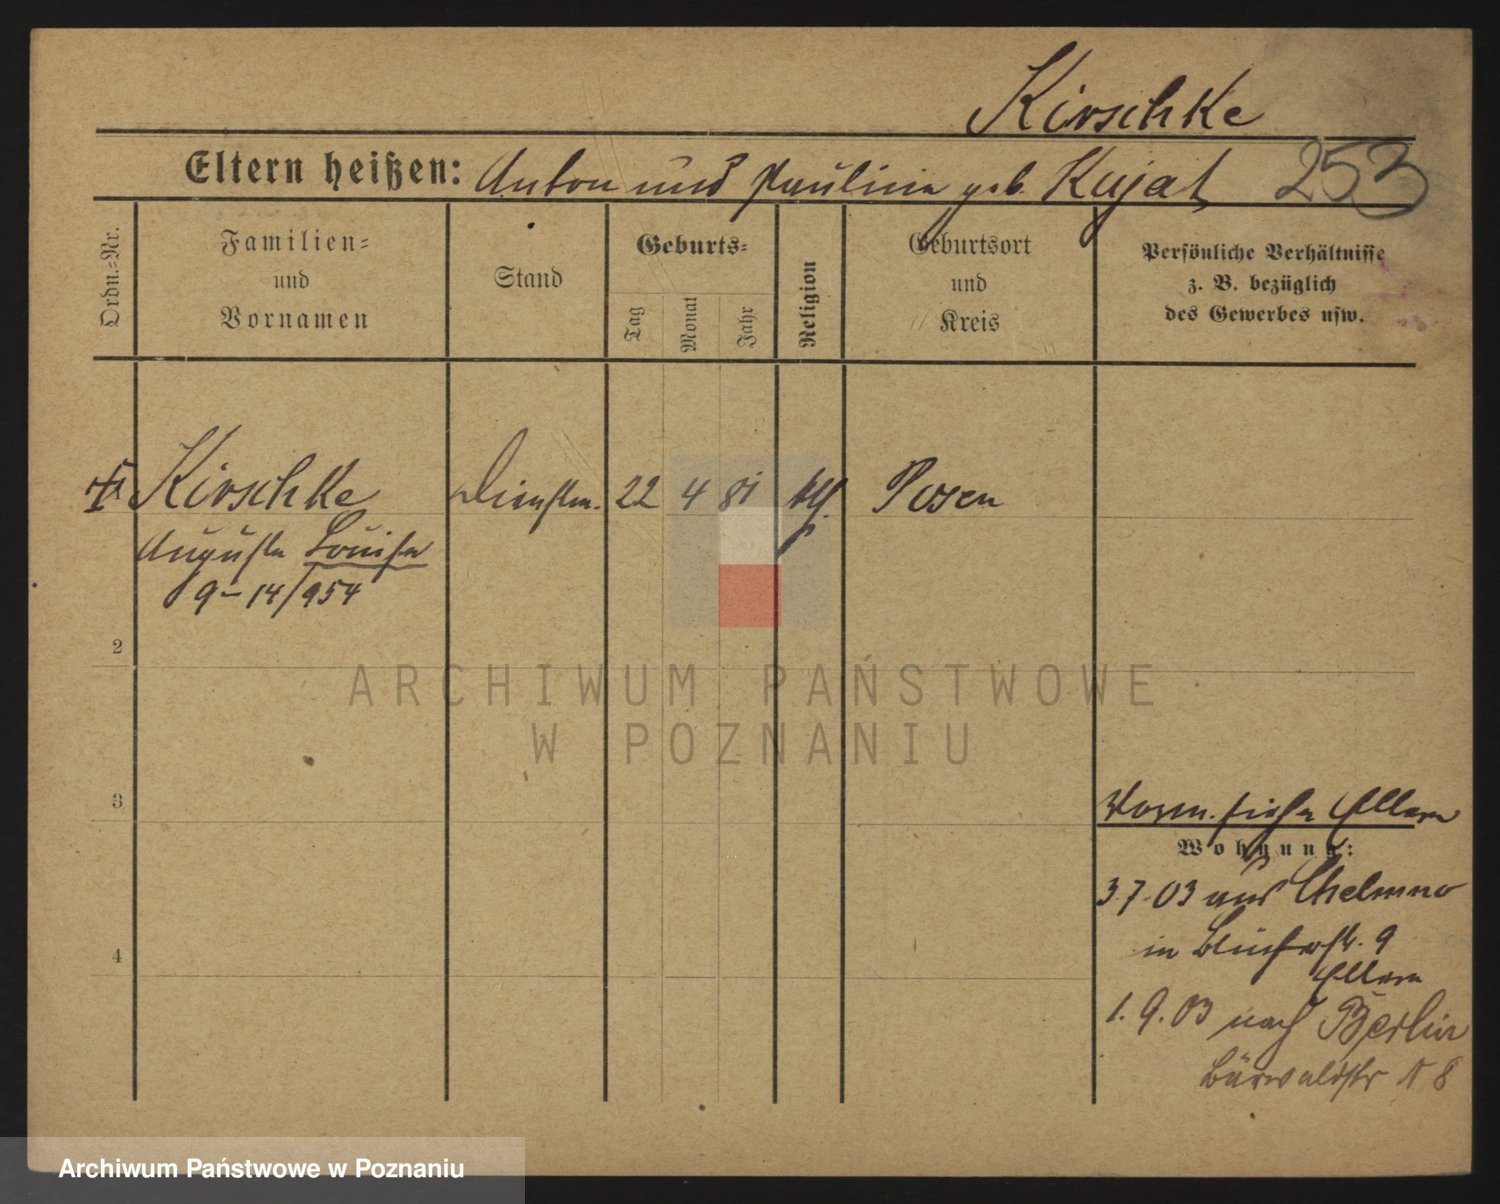 Kirschke
Eltern heißen: Anton und Pauline geb. Kujat 253
Ordn.-Nr.
Familien-
und
Vornamen
Stand
Geburts-
Tag
Monat
Jahr
Religion
Geburtsort
und
Kreis
Persönliche Verhältnisse
z. B. bezüglich
des Gewerbes usw.
Kirschke Dienstm. 22 4 81 kth. Posen
Auguste Louise
9-14/954
2
3
4
Vorm. siehe Eltern
Wohnung:
3.7.03 aus Chelmno
in Blücherstr. 9
Eltern
1.9.03 nach Berlin
Bärwaldstr N 8
ARCHIWUM PAŃSTWOWE
W POZNANIU
Archiwum Państwowe w Poznaniu